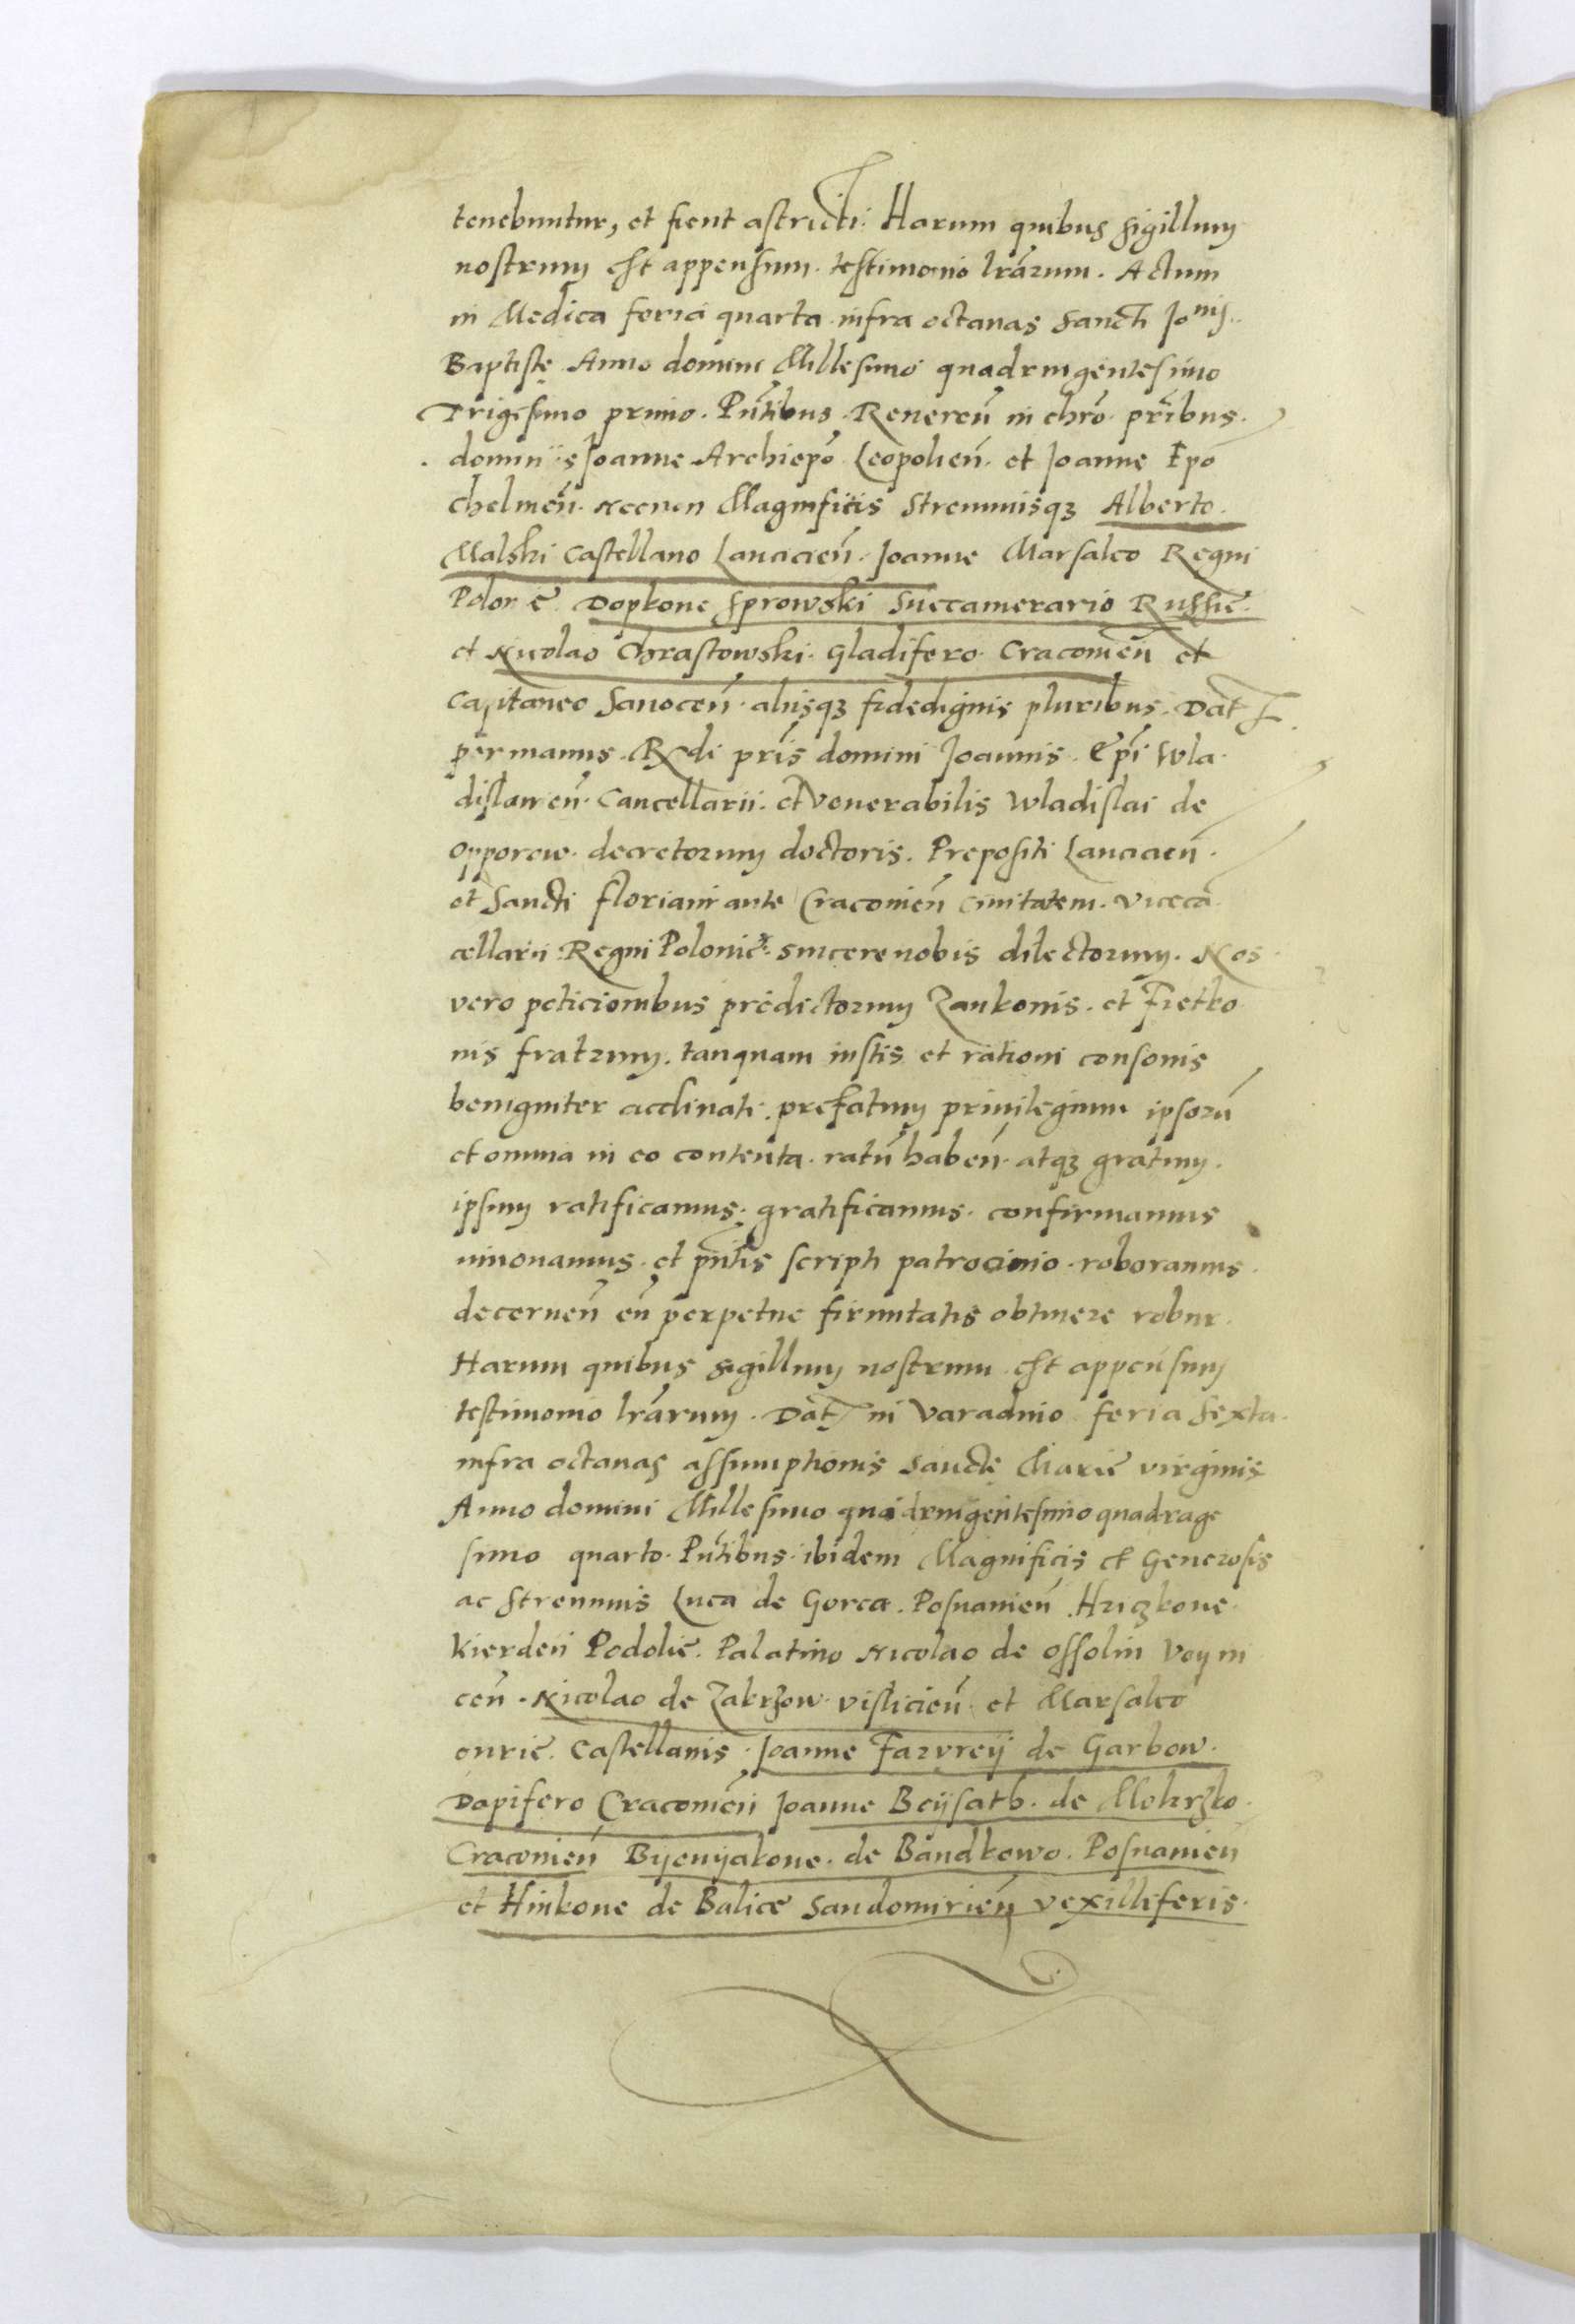 tenebuntur, et fient astricti. Harum quibus sigillum
nostrum est appensum. testimonio lr̃arum. Actum
in Medica feria quarta infra octauas sancti Jo^nis.
Baptistę Anno domini Millesimo quadringentesimo
Trigesimo primo. Pñtibus. Reueren̄ in chr̃o pr̃ibus.
dominiis Joanne Archiep̃o Leopolien̄. et Joanne Ep̃o
chelmen̄. Necnon Magnificis Strennuisqꝫ Alberto.
Malski Castellano Lanacien̄. Joanne Marsalco Regni
Polonię Dopkone Sprowski Succamerario Russię.
et Nicolao Chrastowski. Gladifero. Cracouien̄ et
Capitaneo Sanocen̄. aliisqꝫ fidedignis pluribus. Dat̃
per manus. Rx̃di pr̃is domini Joannis. Ep̃i Wla
dislauien̄. Cancellarii. et Venerabilis Wladislai de
Opporow. decretorum doctoris. Prepositi Lanacien̄.
et Sancti floriani ante Cracouien̄ Ciuitatem. Vicecã
cellarii Regni Polonię. sincere nobis dilectorum. Nos
vero peticionibus prędictorum Zankonis. et Fietko
nis fratrum. tanquam iustis et rationi consonis
benigniter acclinati. prefatum priuilegium ipsorũ
et omnia in eo contenta. ratũ haben̄. atqꝫ gratum.
ipsum ratificamus. gratificamus. confirmamus
innouamus. et pñtis scripti patrocinio. roboramus.
decernen̄ eũ perpetuę firmitatis obtinere robur.
Harum quibus sigillum nostrum est appensum
testimonio lr̃arum. Dat̃ in Varadino feria sexta
infra octauas assumptionis sanctę Marię virginis
Anno domini Millesimo quadringentesimo quadrage
simo quarto. Pñtibus. ibidem Magnificis et Generosis
ac Strennuis Luca de Gorca. Posnanien̄ Hriczkone.
Kierdeii Podolię. Palatino Nicolao de Ossolin Voyni
cen̄. Nicolao de Zakrzow. vislicien̄. et Marsalco
curię. Castellanis. Joanne Farvreij de Garbow.
Dapifero Cracouien̄ Joanne Beijsath. de Mokrzko.
Cracouien̄ Byenyakone. de Bandkowo. Posnanien̄
et Hinkone de Balice Sandomirien̄ vexilliferis.